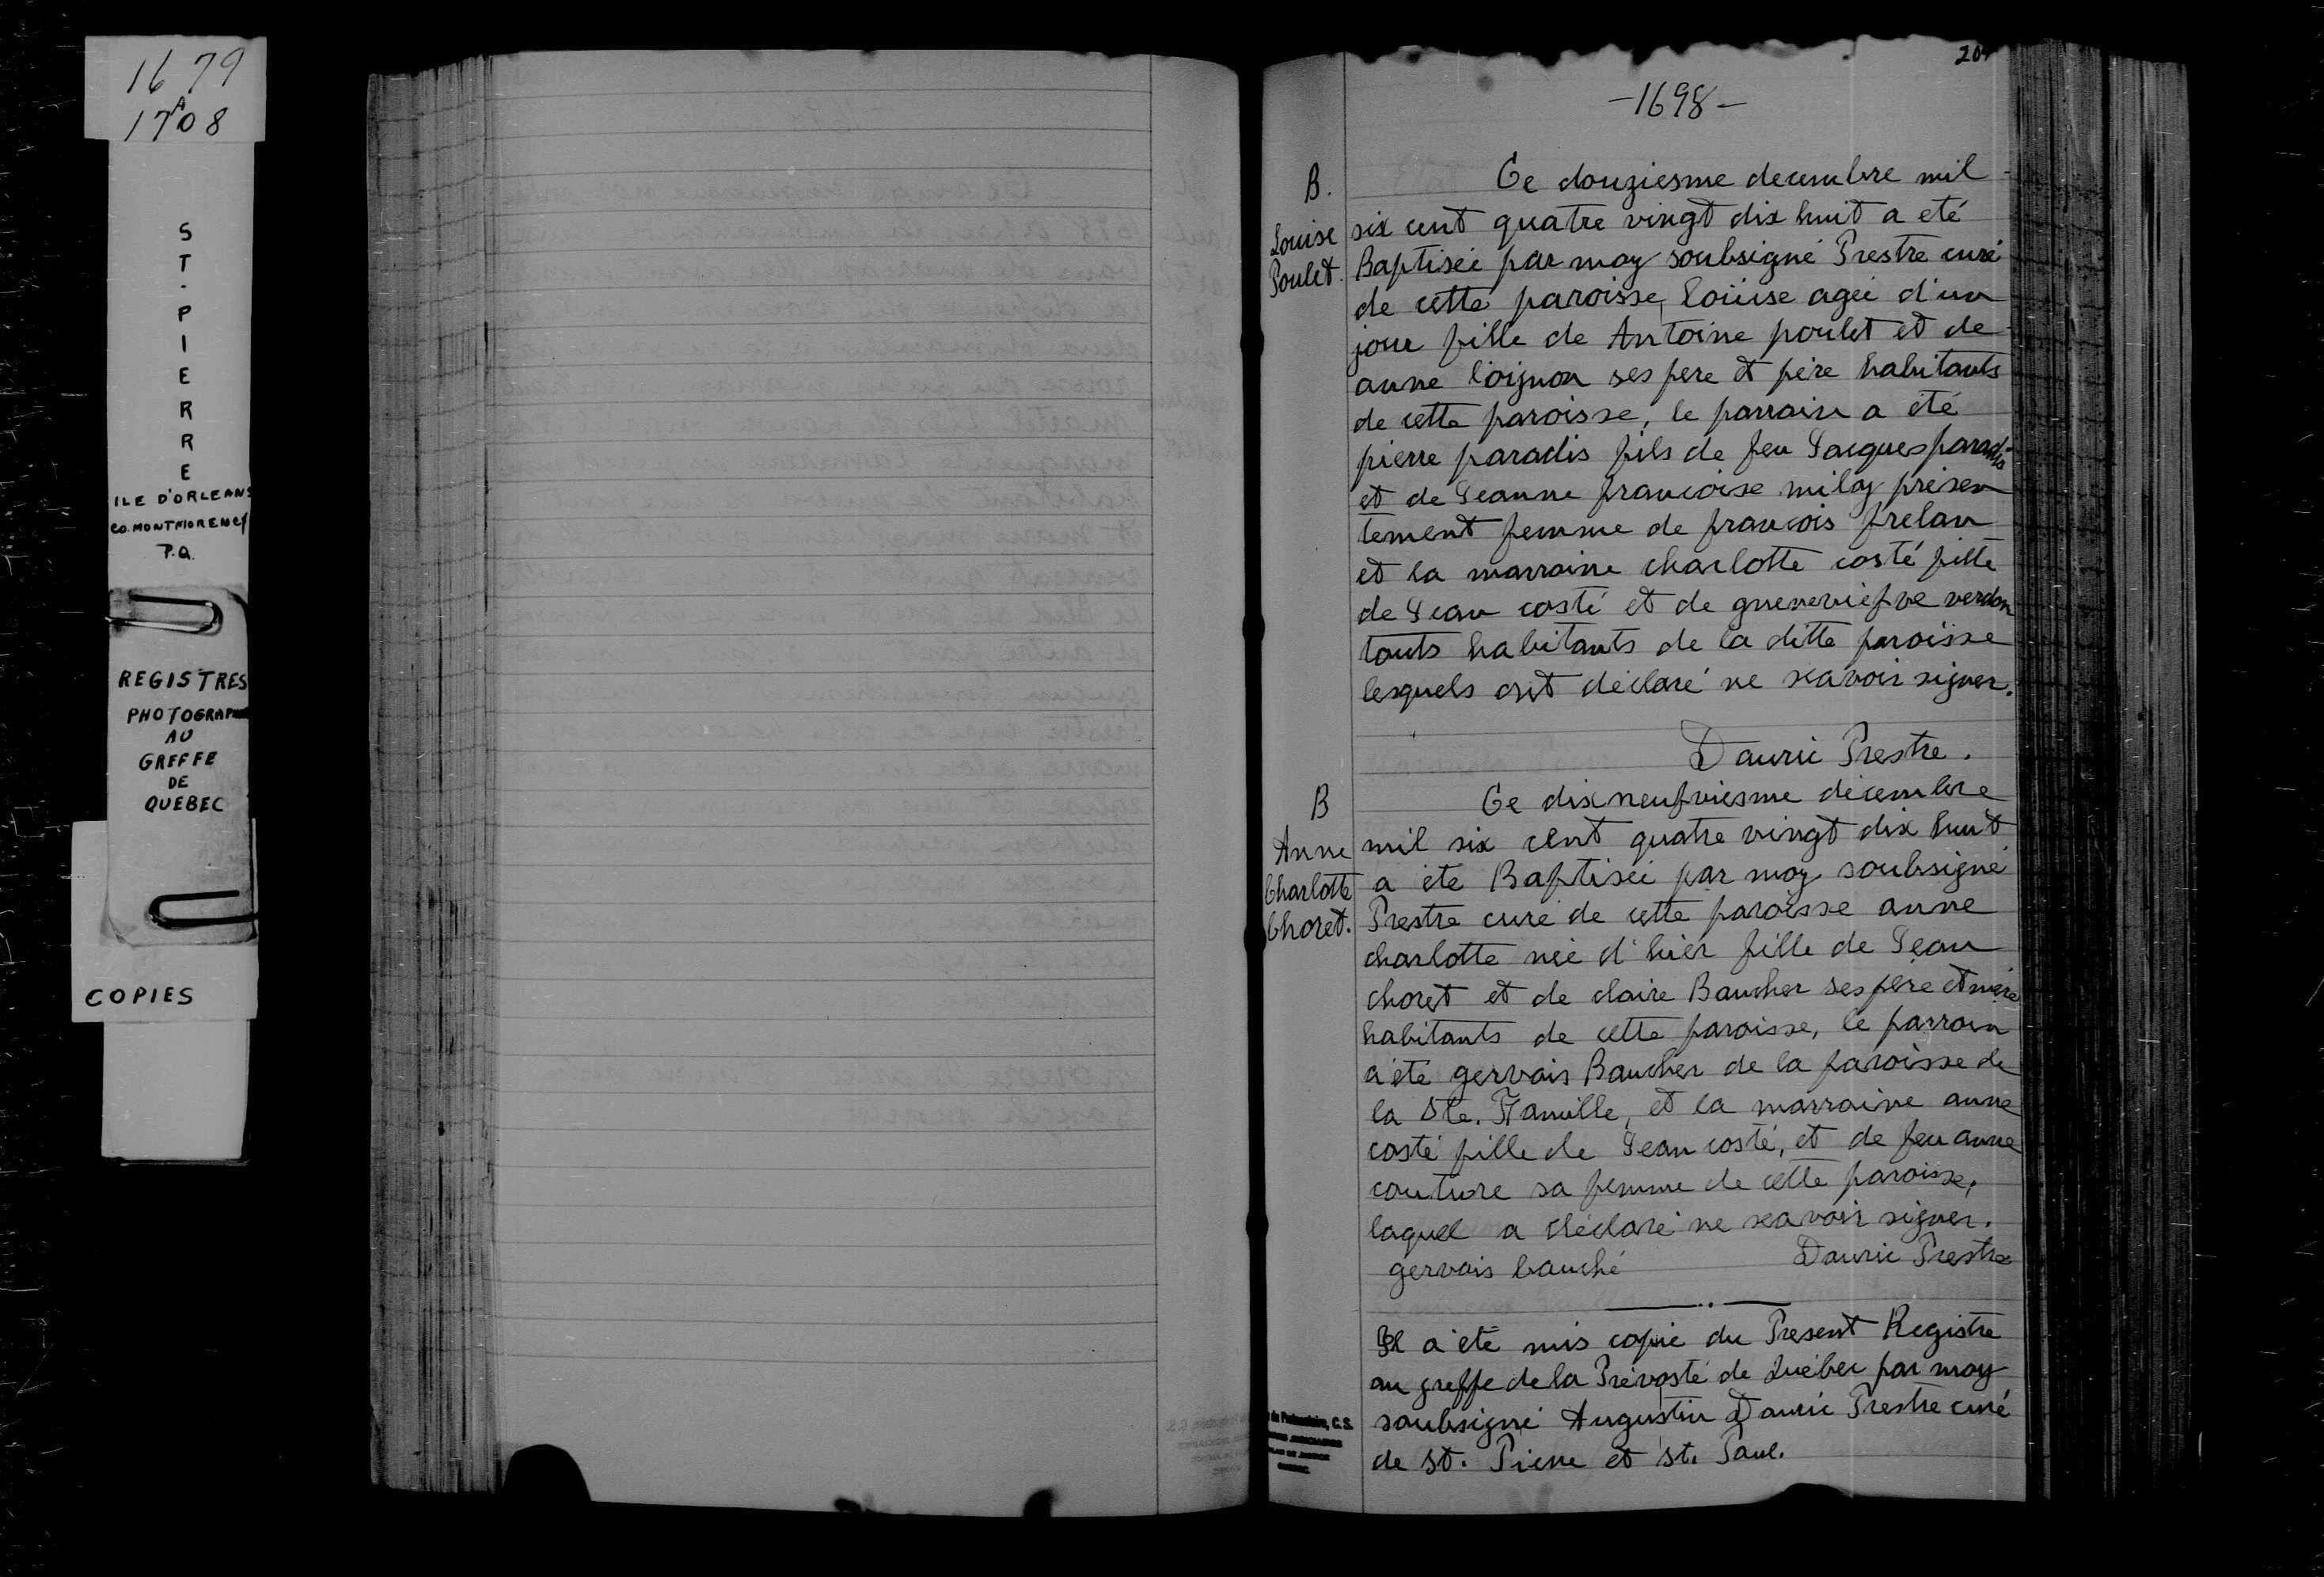 1679
A
1708
ST-PIERRE
ILE D'ORLEANS
CO. MONTMORENCY
P.Q.
REGISTRES
PHOTOGRAPH
AU
GREFFE
DE
QUEBEC
COPIES
-1698-
B.
Louise
Poulet.
Ce douziesme decembre mil
six cent quatre vingt dix huit a eté
Baptisée par moy soubsigné Prestre curé
de cette paroisse, loüise agée d'un
jour fille de Antoine poulet et de
anne loignon ses pere et père habitants
de cette paroisse, le parrain a été
pierre paradis fils de feu Jacques paradis
et de Jeanne francoise miloy présen
tement femme de francois frelan
et la marraine charlotte costé fille
de Jean costé et de guenevief ve verdon
touts habitants de la ditte paroisse
lesquels ont déclaré ne scavoir signer.
Dauric Prestre.
B
Anne
Charlotte
Choret.
Ce dix neufviesme décembre
mil six cent quatre vingt dix huit
a été Baptisée par moy soubsigné
Prestre curé de cette paroisse anne
charlotte née d'hier fille de Jean
choret et de claire Baucher ses père et mère
habitants de cette paroisse, le parrain
a été gervais Baucher de la paroisse de
la Ste. Famille, et la marraine anne
costé fille de Jean costé, et de feu anne
couture sa femme de cette paroisse,
laquel a déclaré ne scavoir signer.
gervais bauché Dauric Prestre
Il a été mis copie du Present Registre
au greffe de la Prévosté de Québec par moy
soubsigné Augustin Dauric Prestre curé
de St. Pierre et St. Paul.